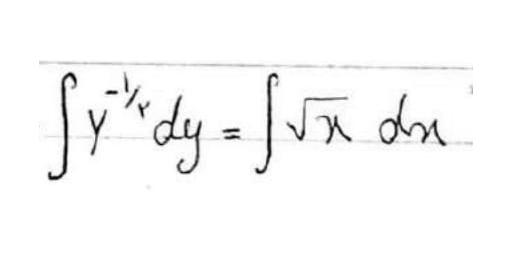 ∫ y^{-1/۲} dy = ∫ √x dx